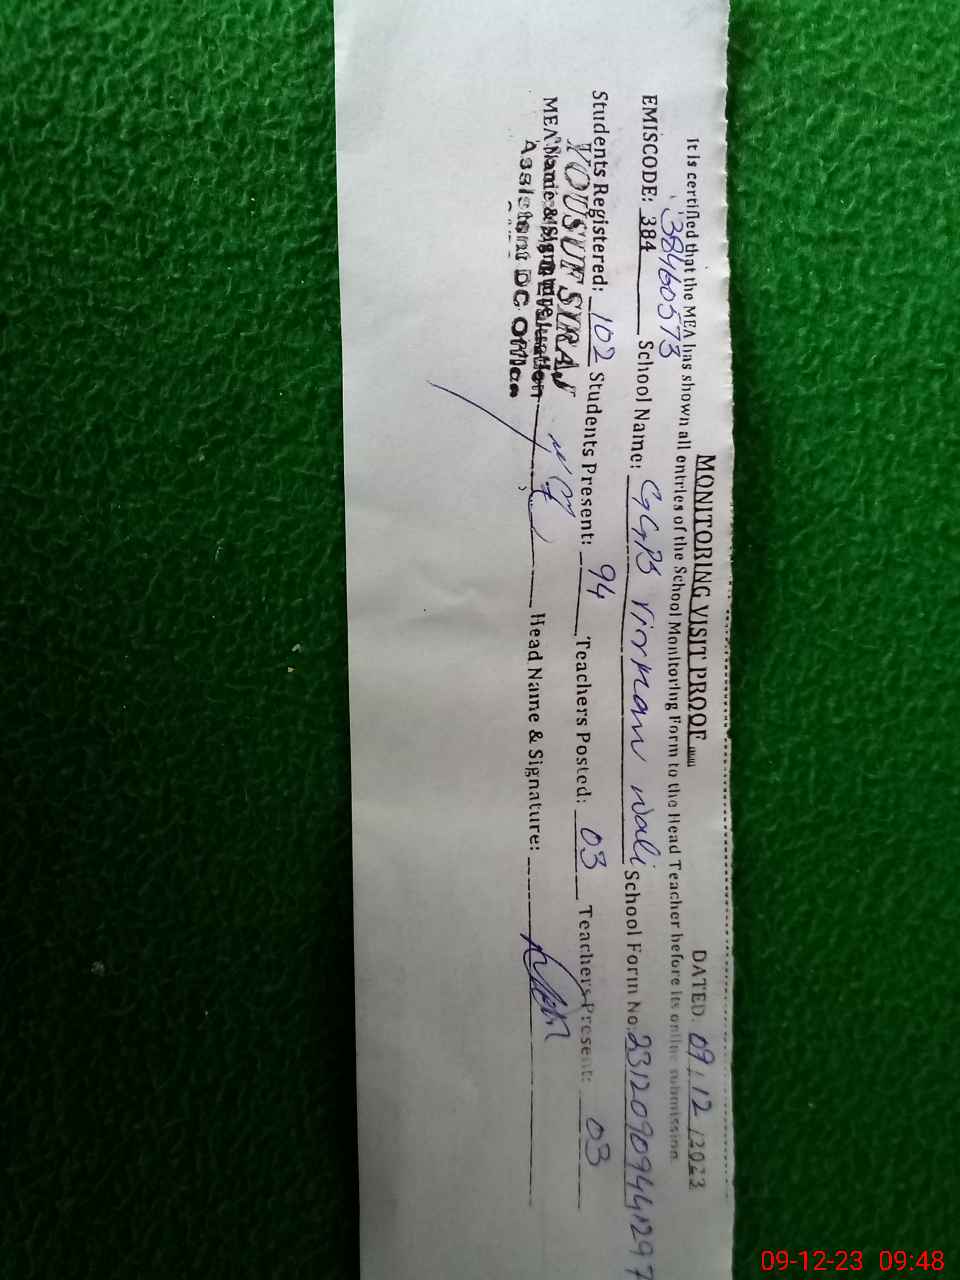 MONITORING VISIT PROOF
DATED: 09/12/2023
It is certified that the MEA has shown all entries of the School Monitoring Form to the Head Teacher before its online submission.
38460573
EMISCODE: 384 School Name: GGPS Virman wali School Form No: 231209094441297
Students Registered: 102 Students Present: 94 Teachers Posted: 03 Teachers Present: 03
YOUSUF
MEA Name & Signature Head Name & Signature:
Assistant DC Office
09-12-23 09:48